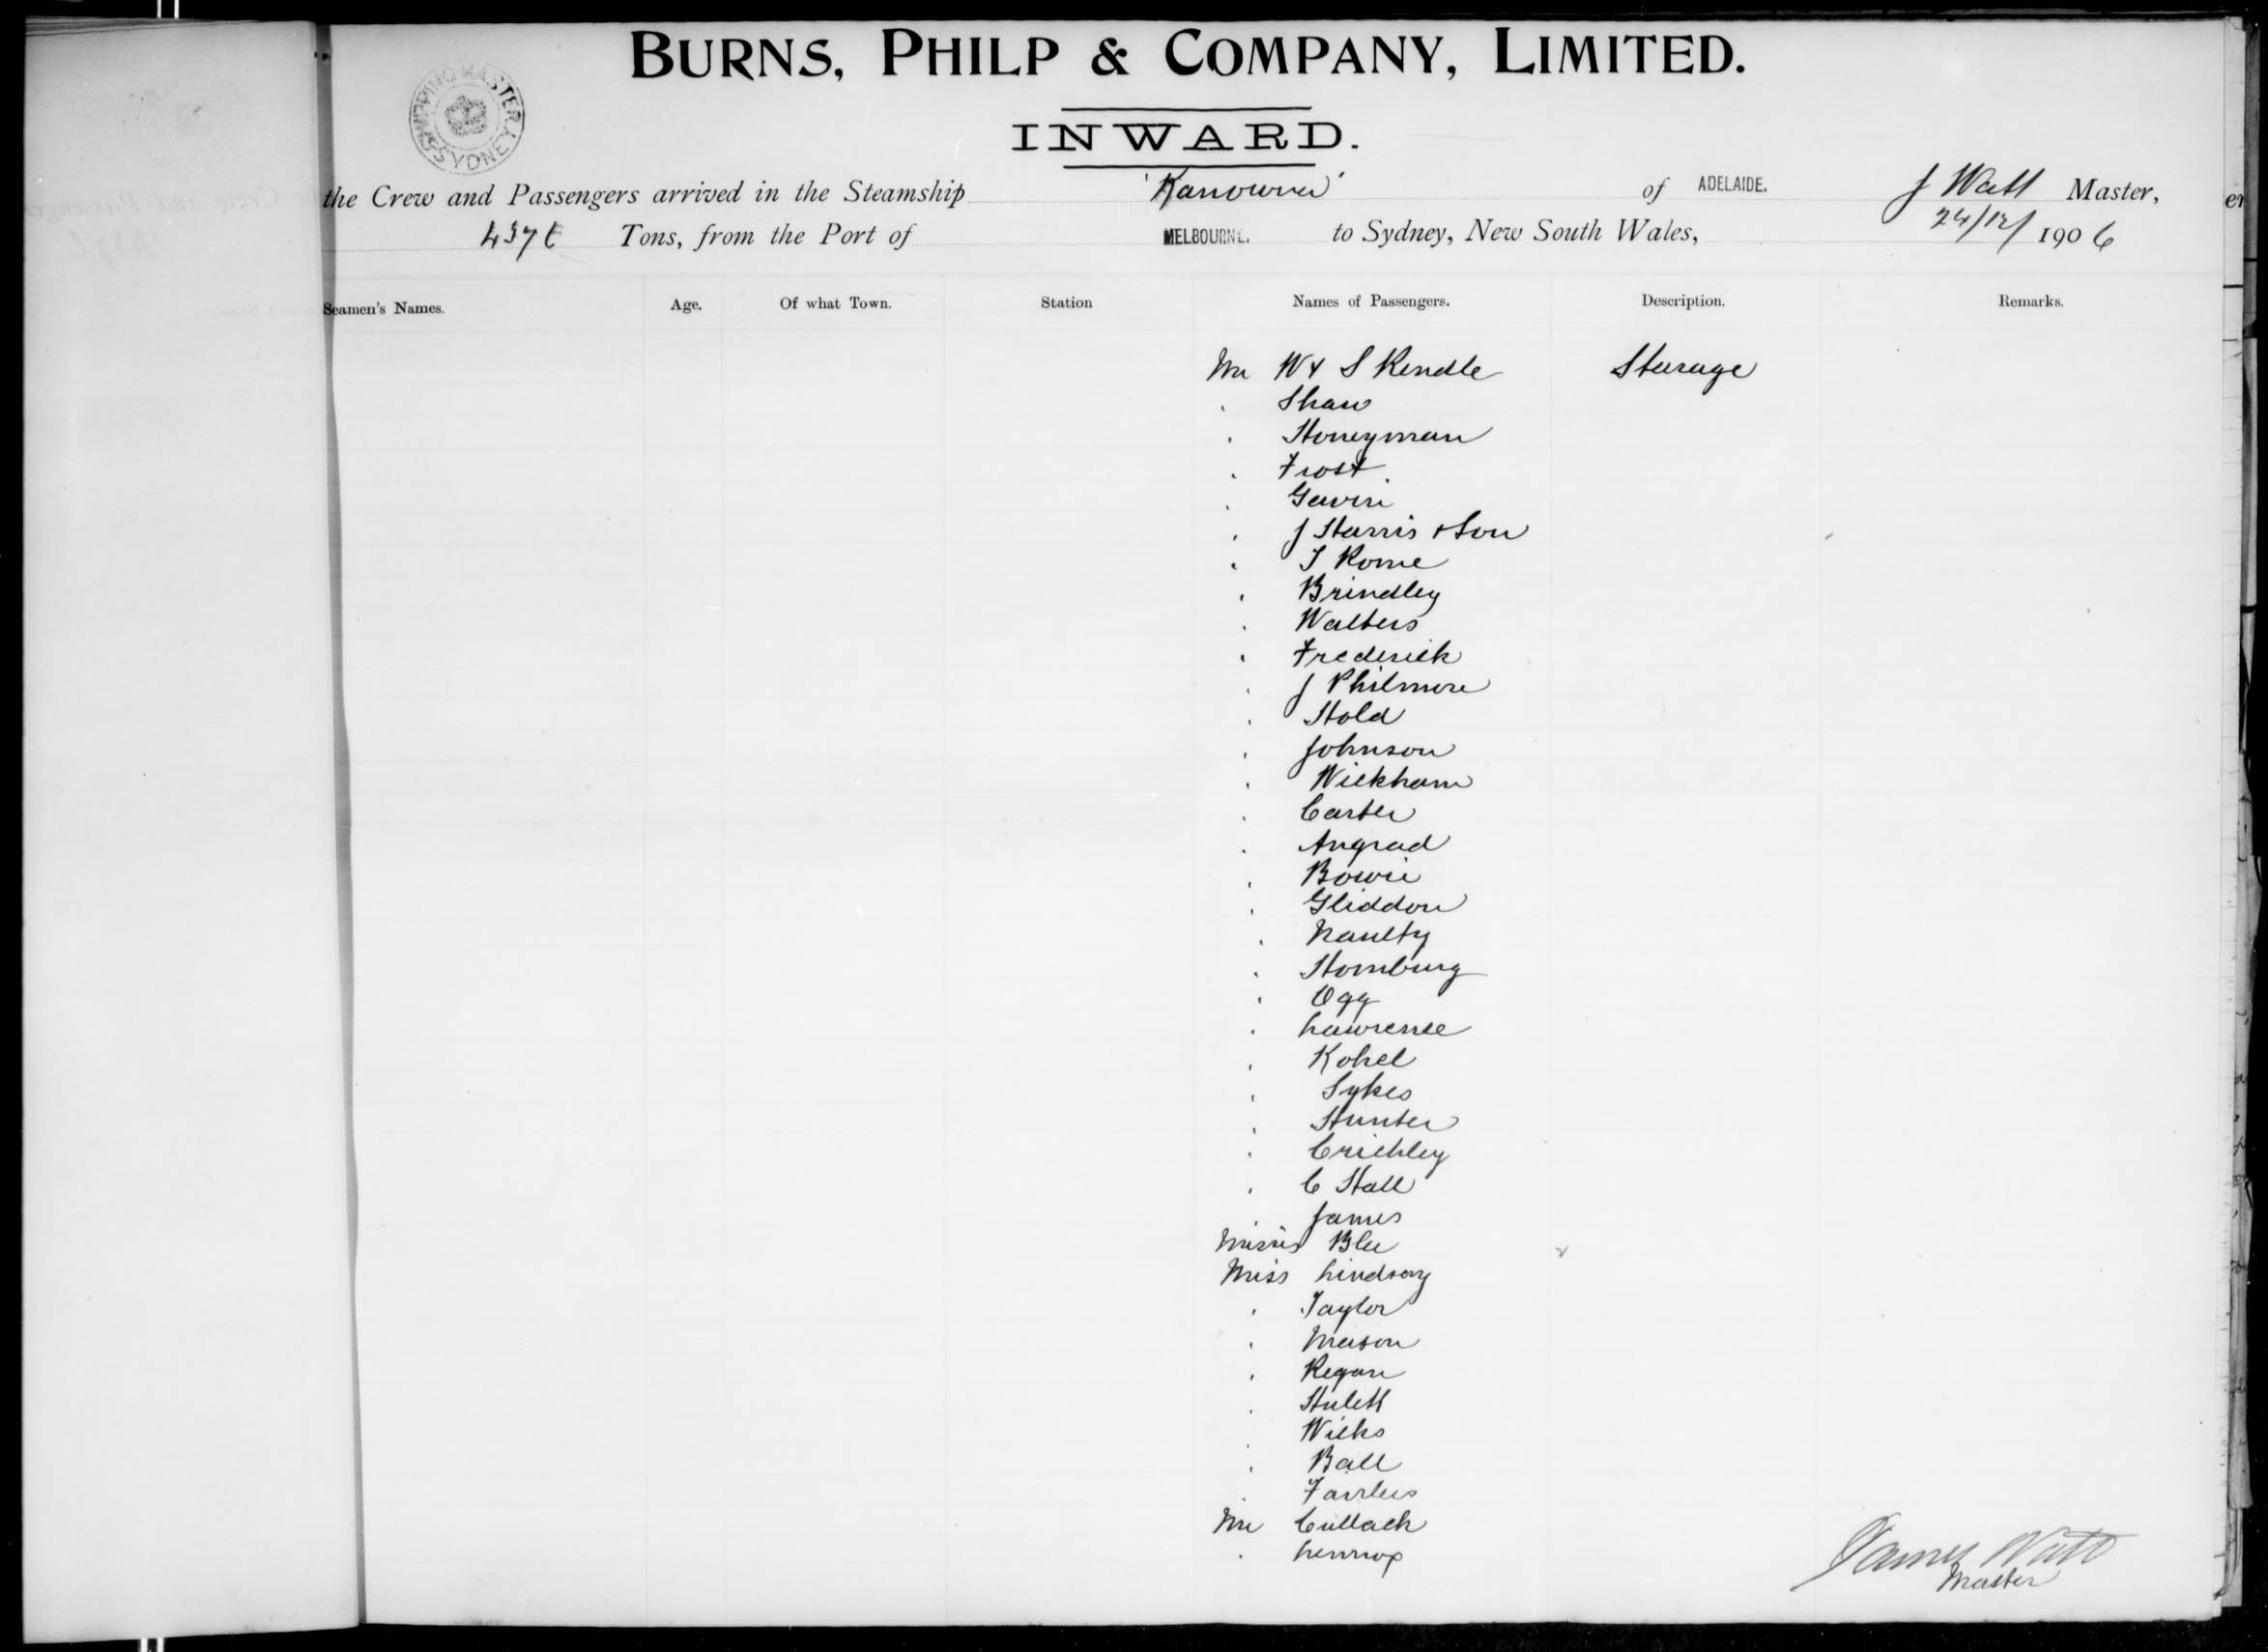 BURNS, PHILP & COMPANY, LIMITED.
SHIPPING MASTER SYDNEY
INWARD.
the Crew and Passengers arrived in the Steamship 'Kanowna' of ADELAIDE. J Watt Master,
Tons, from the Port of MELBOURNE. to Sydney, New South Wales, 24/12/ 1906
Seamen's Names. Age. Of what Town. Station Names of Passengers. Description. Remarks.
Mr W & S Kendle Steerage
" Shaw
" Honeyman
" Frost
" Gavin
" J Harris & Son
" T Rome
" Brindley
" Walters
" Frederick
" J Philmore
" Hold
" Johnson
" Wickham
" Carter
" Angrad
" Bowie
" Gliddon
" Naulty
" Homburg
" Ogg
" Lawrence
" Kohel
" Sykes
" Hunter
" Crichley
" C Hall
" James
Misses Blee
Miss Lindsay
" Taylor
" Mason
" Regan
" Hulett
" Wicks
" Ball
" Fairlees
Mr Cullach
" Lennox
James Watt
Master